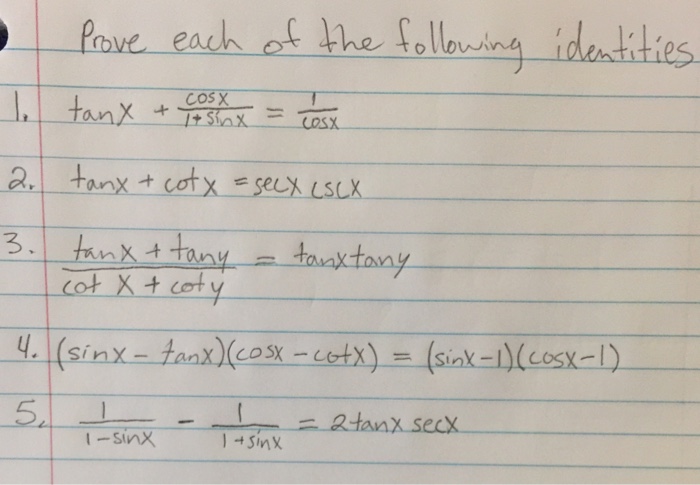 Prove each of the following identities
1. tanx + cosx/(1+sinx) = 1/cosx
2. tanx + cotx = secx cscx
3. (tanx + tany)/(cot x + coty) = tanxtany
4. (sinx - tanx)(cosx - cotx) = (sinx-1)(cosx-1)
5. 1/(1-sinx) - 1/(1+sinx) = 2tanx secx